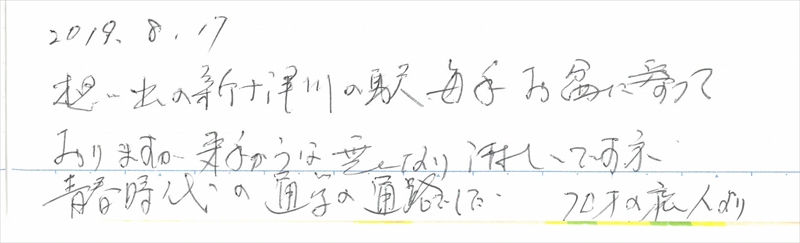 2019.8.17
想い出の新十津川の駅、毎年お盆に寄って
おりますが来年からは無くなり淋しいですネ
青春時代の通学の通路でした 72才の旅人より